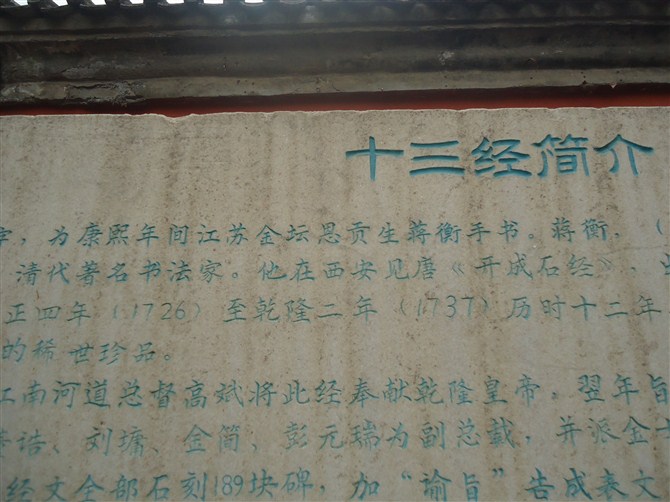 十三经简介
字，为康熙年间江苏金坛恩贡生蒋衡手书。蒋衡，（
清代著名书法家。他在西安见唐《开成石经》，
正四年（1726）至乾隆二年（1737）历时十二年
的稀世珍品。
江南河道总督高斌将此经奉献乾隆皇帝，翌年旨
诰、刘墉、金简、彭元瑞为副总裁，并派金士
经文全部石刻189块碑，加“谕旨”告成表文